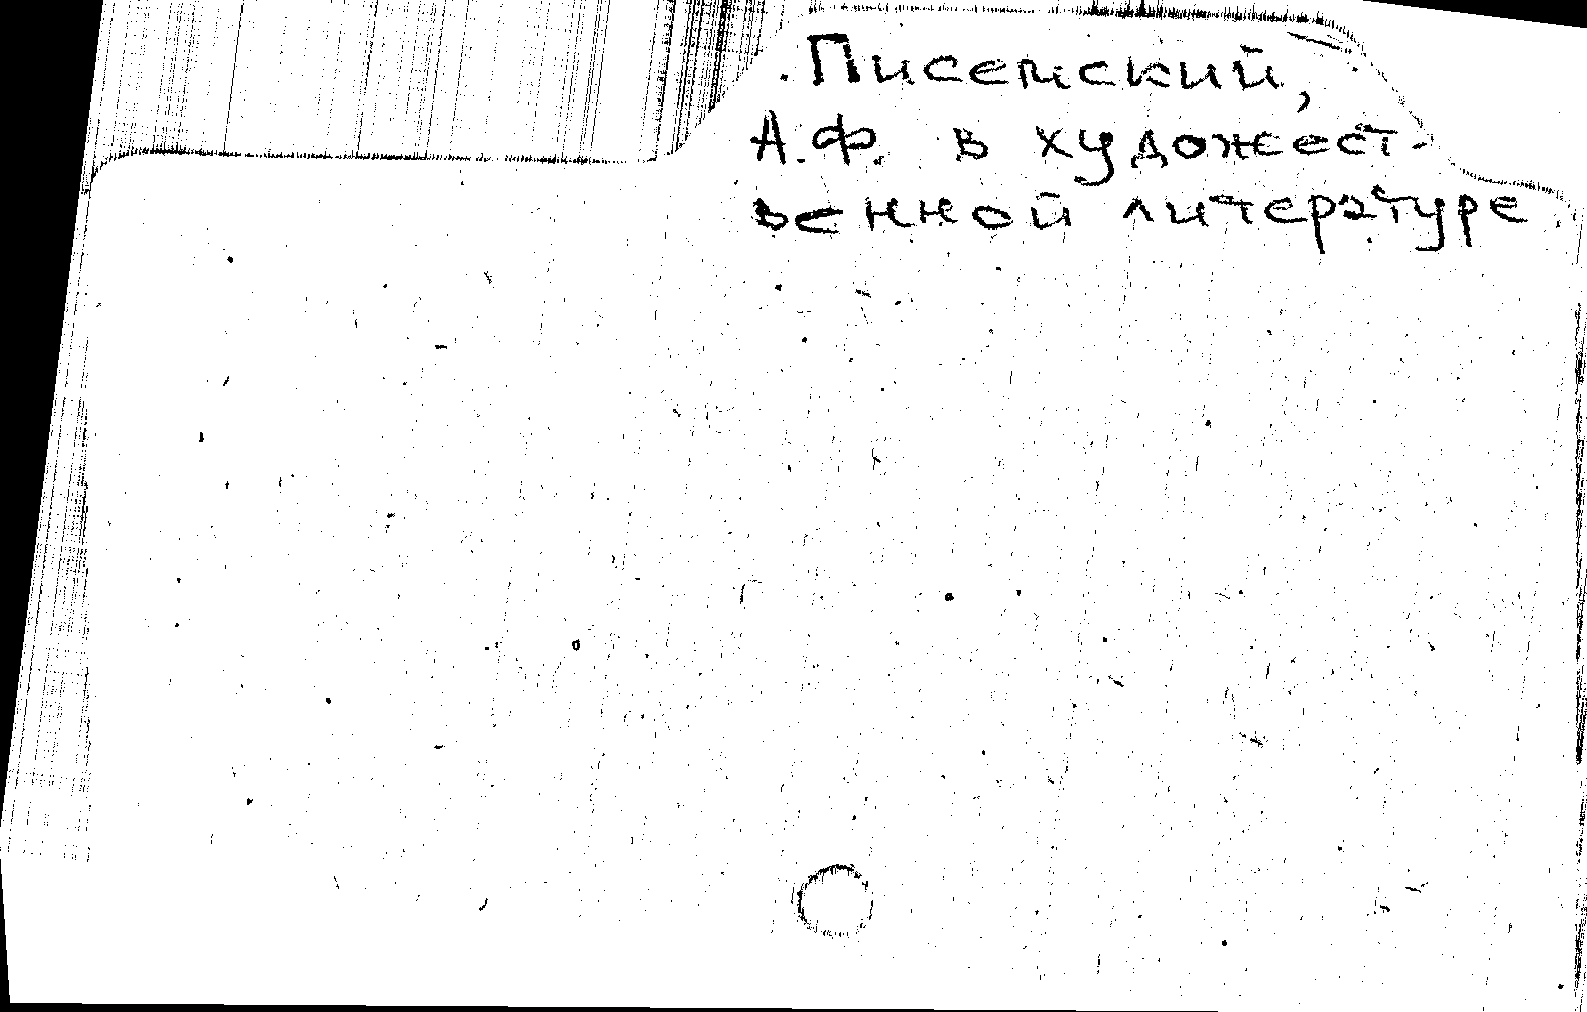 Писемский,
А.Ф. в художест-
венной литературе